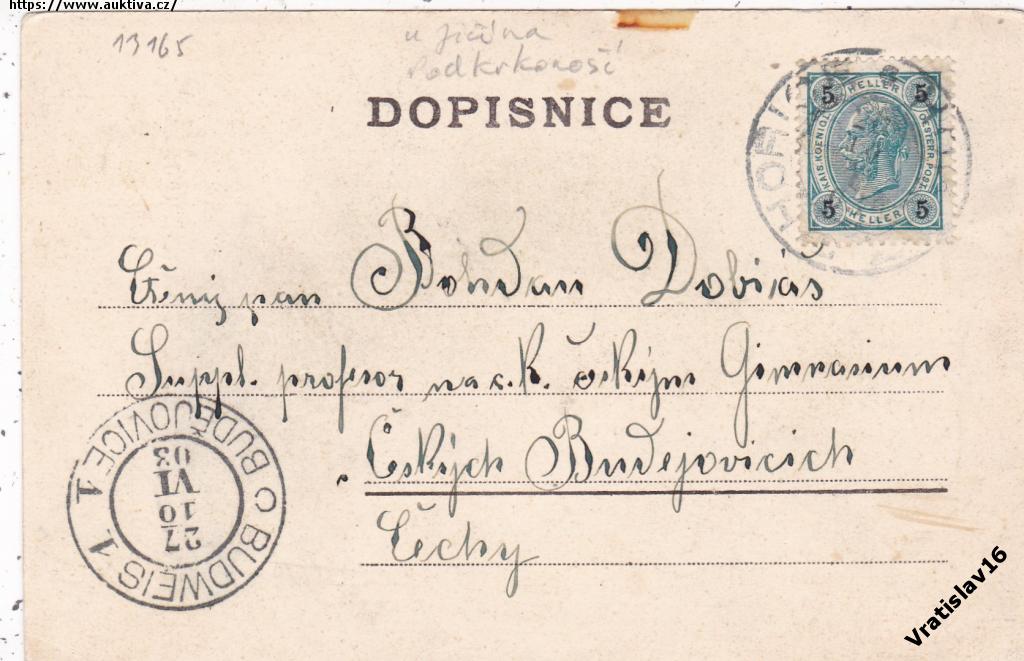 https://www.auktiva.cz/
13165
u Jičína
Podkrkonoší
DOPISNICE
5 HELLER 5
KAIS. KOENIGL. OESTERR. POST.
5 HELLER 5
Ctěný pan Bohdan Dobiáš
Suppl. profesor na c.k. českým Gimnasium
Českých Budějovicích
Čechy
C BUDĚJOVICE 1
BUDWEIS 1
27
10
VI
03
Vratislav16